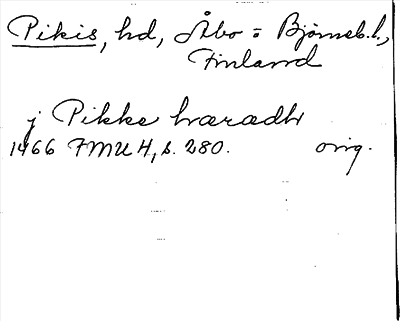 Pikis, hd, Åbo = Björneb. l.,
Finland
j Pikke hæradh
1466 FMU 4, s. 280. orig.